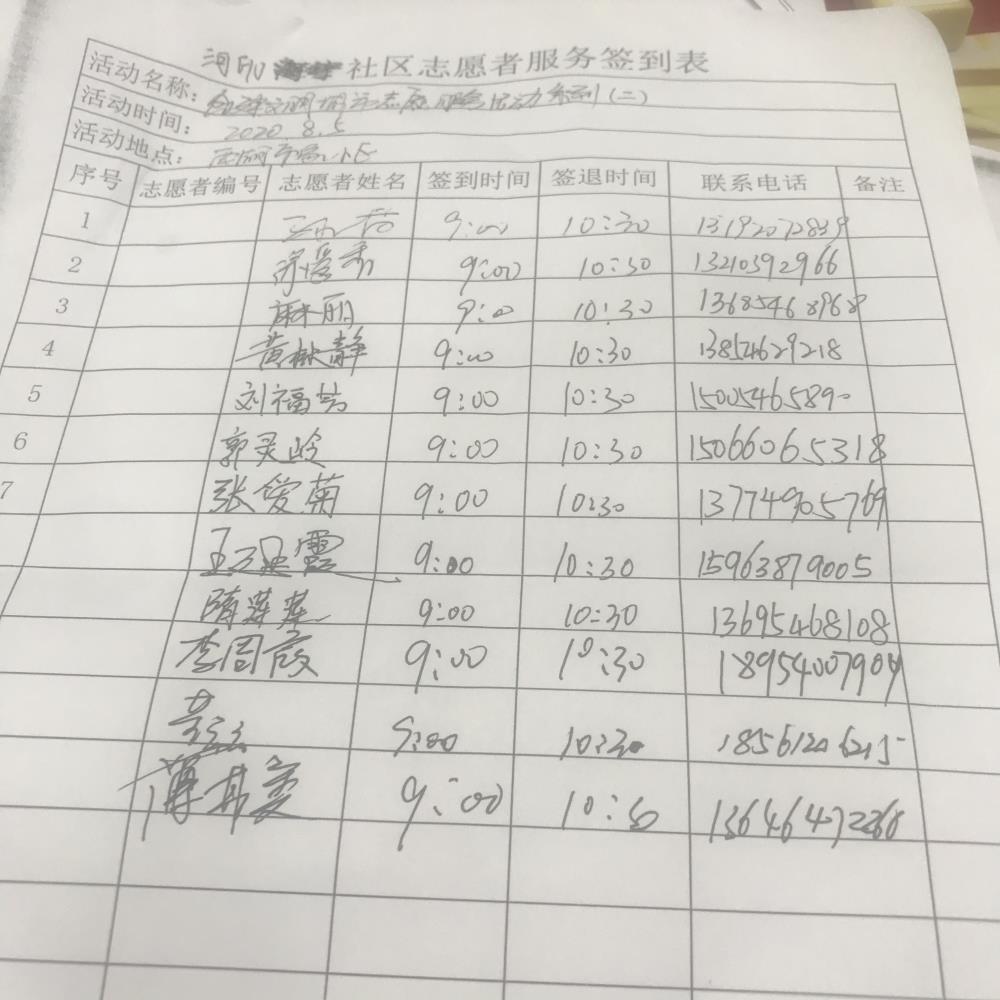 社区志愿者服务签到表
活动名称: 志愿服务活动系列(二)
活动时间: 2020.8.5
活动地点: 小区
序号 志愿者编号 志愿者姓名 签到时间 签退时间 联系电话 备注
1 9:00 10:30 13192072839
2 徐爱秀 9:00 10:30 13210392966
3 麻丽 9:00 10:30 13685468968
4 黄林静 9:00 10:30 13854629218
5 刘福芸 9:00 10:30 15005465890
6 郭灵玲 9:00 10:30 15066065318
7 张爱菊 9:00 10:30 13774905769
9:00 10:30 15963879005
隋莲莲 9:00 10:30 13695468108
李周霞 9:00 10:30 18954007904
9:00 10:30 18561206215
薄其委 9:00 10:30